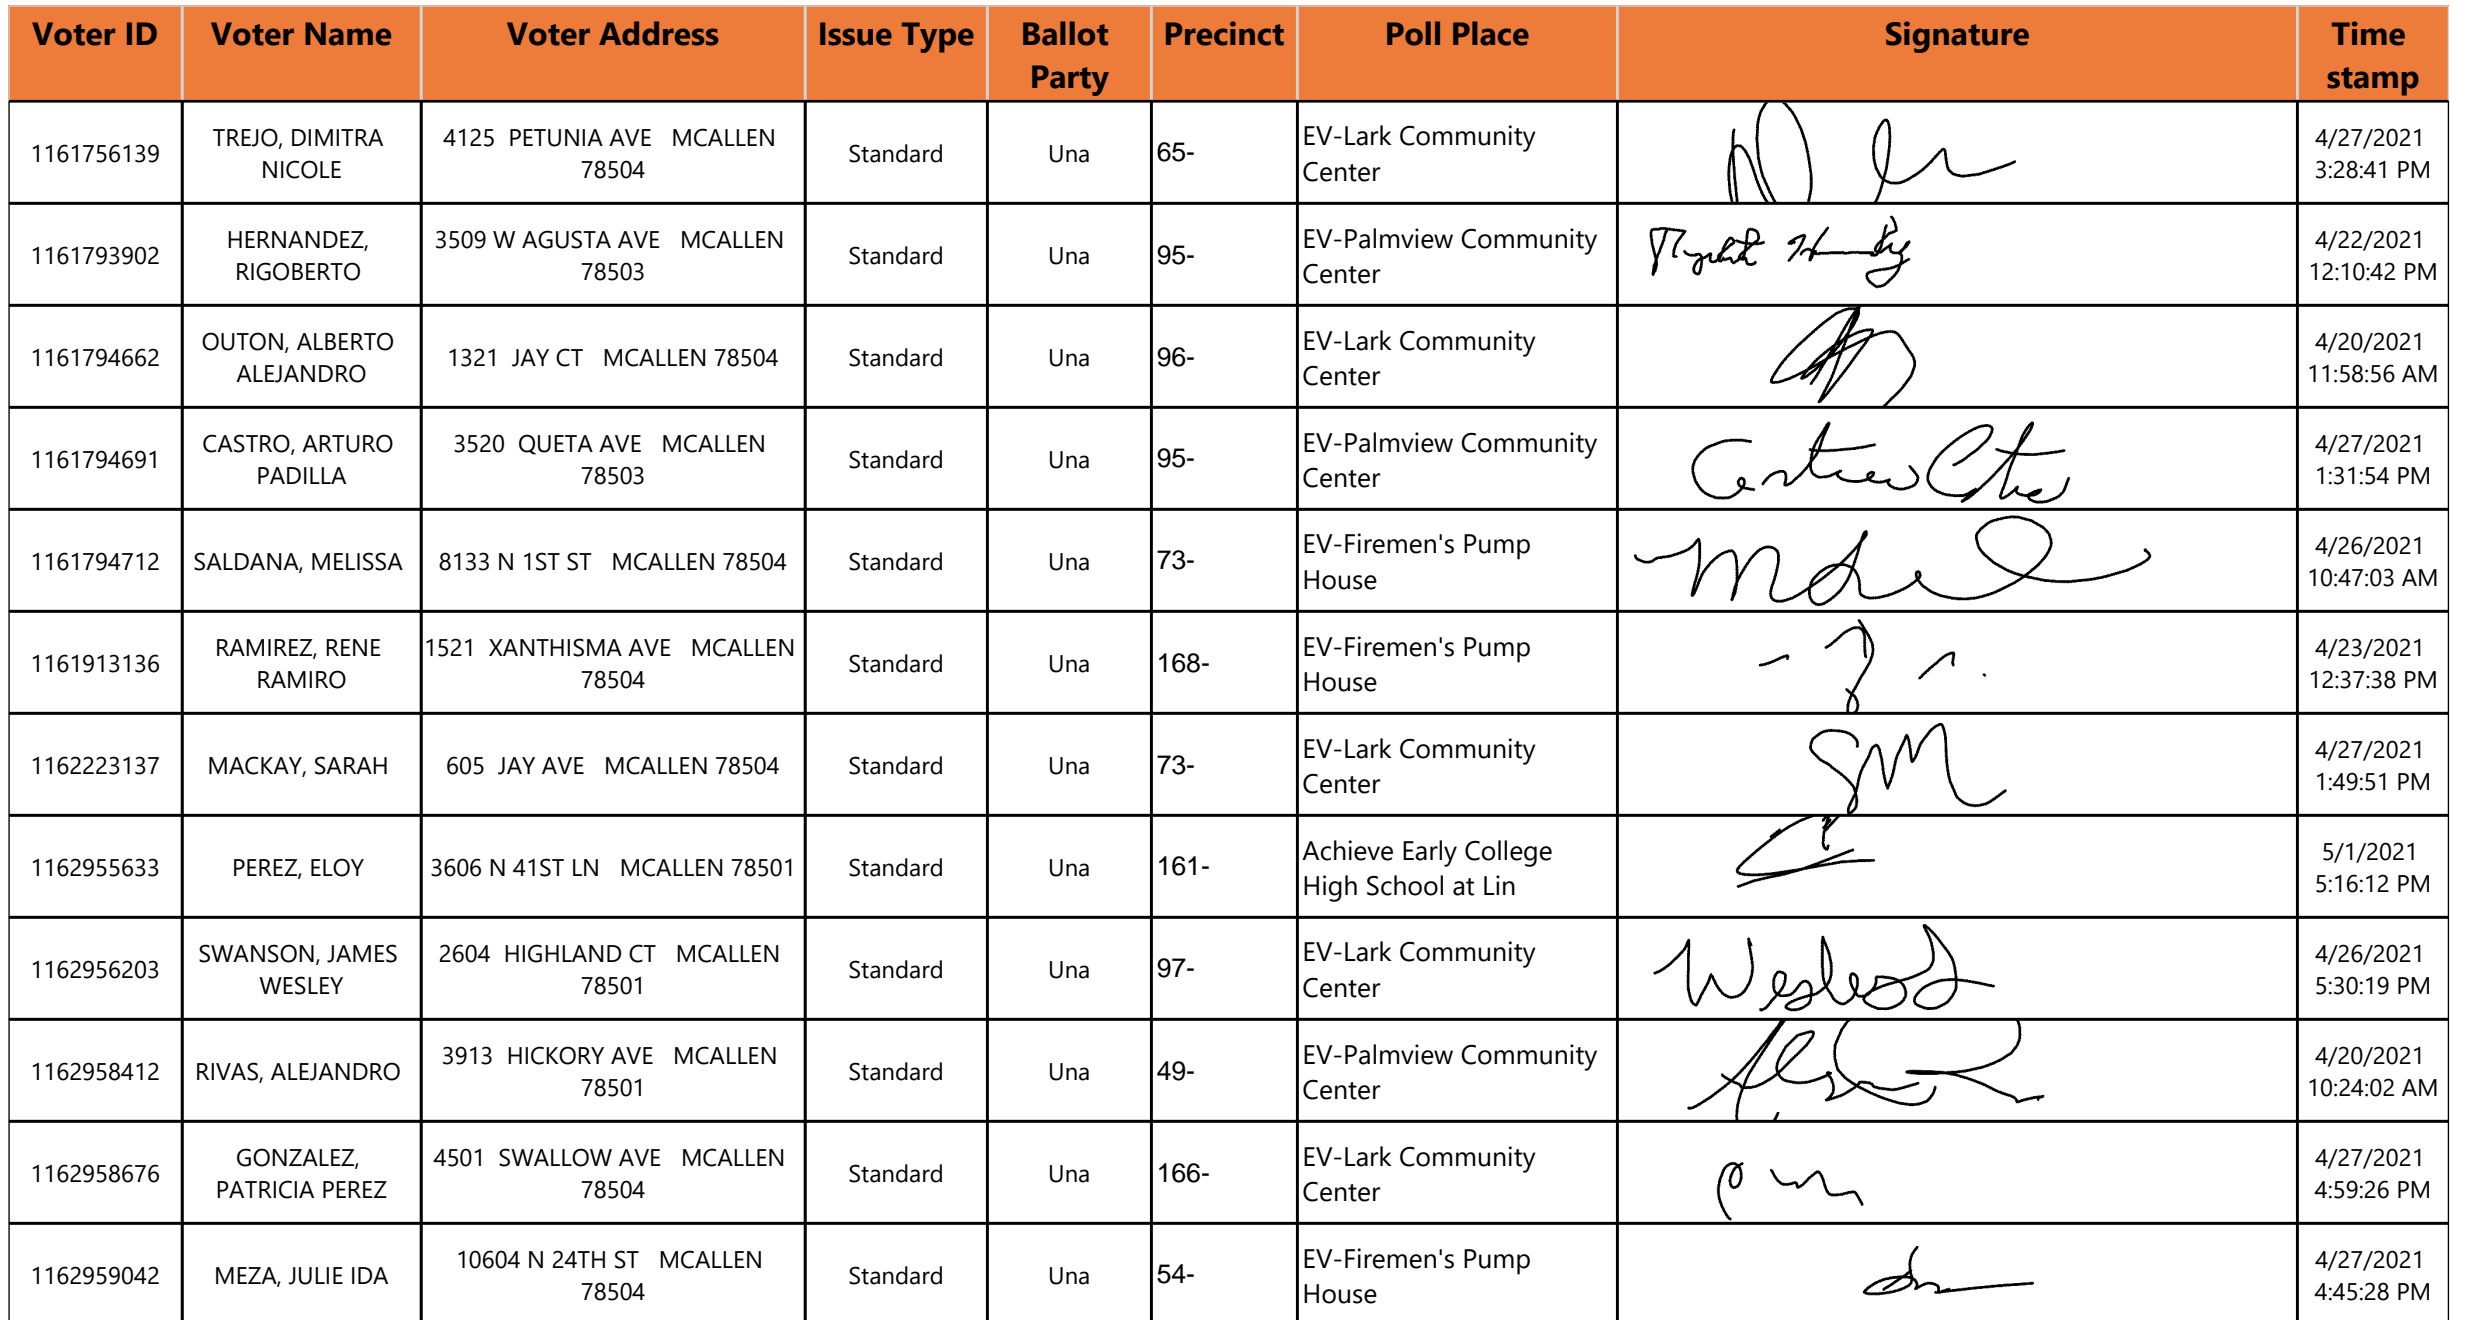 Voter ID Voter Name Voter Address Issue Type Ballot Party Precinct Poll Place Signature Time stamp
1161756139 TREJO, DIMITRA NICOLE 4125 PETUNIA AVE MCALLEN 78504 Standard Una 65- EV-Lark Community Center 4/27/2021 3:28:41 PM
1161793902 HERNANDEZ, RIGOBERTO 3509 W AGUSTA AVE MCALLEN 78503 Standard Una 95- EV-Palmview Community Center 4/22/2021 12:10:42 PM
1161794662 OUTON, ALBERTO ALEJANDRO 1321 JAY CT MCALLEN 78504 Standard Una 96- EV-Lark Community Center 4/20/2021 11:58:56 AM
1161794691 CASTRO, ARTURO PADILLA 3520 QUETA AVE MCALLEN 78503 Standard Una 95- EV-Palmview Community Center 4/27/2021 1:31:54 PM
1161794712 SALDANA, MELISSA 8133 N 1ST ST MCALLEN 78504 Standard Una 73- EV-Firemen's Pump House 4/26/2021 10:47:03 AM
1161913136 RAMIREZ, RENE RAMIRO 1521 XANTHISMA AVE MCALLEN 78504 Standard Una 168- EV-Firemen's Pump House 4/23/2021 12:37:38 PM
1162223137 MACKAY, SARAH 605 JAY AVE MCALLEN 78504 Standard Una 73- EV-Lark Community Center SM 4/27/2021 1:49:51 PM
1162955633 PEREZ, ELOY 3606 N 41ST LN MCALLEN 78501 Standard Una 161- Achieve Early College High School at Lin 5/1/2021 5:16:12 PM
1162956203 SWANSON, JAMES WESLEY 2604 HIGHLAND CT MCALLEN 78501 Standard Una 97- EV-Lark Community Center 4/26/2021 5:30:19 PM
1162958412 RIVAS, ALEJANDRO 3913 HICKORY AVE MCALLEN 78501 Standard Una 49- EV-Palmview Community Center 4/20/2021 10:24:02 AM
1162958676 GONZALEZ, PATRICIA PEREZ 4501 SWALLOW AVE MCALLEN 78504 Standard Una 166- EV-Lark Community Center 4/27/2021 4:59:26 PM
1162959042 MEZA, JULIE IDA 10604 N 24TH ST MCALLEN 78504 Standard Una 54- EV-Firemen's Pump House 4/27/2021 4:45:28 PM